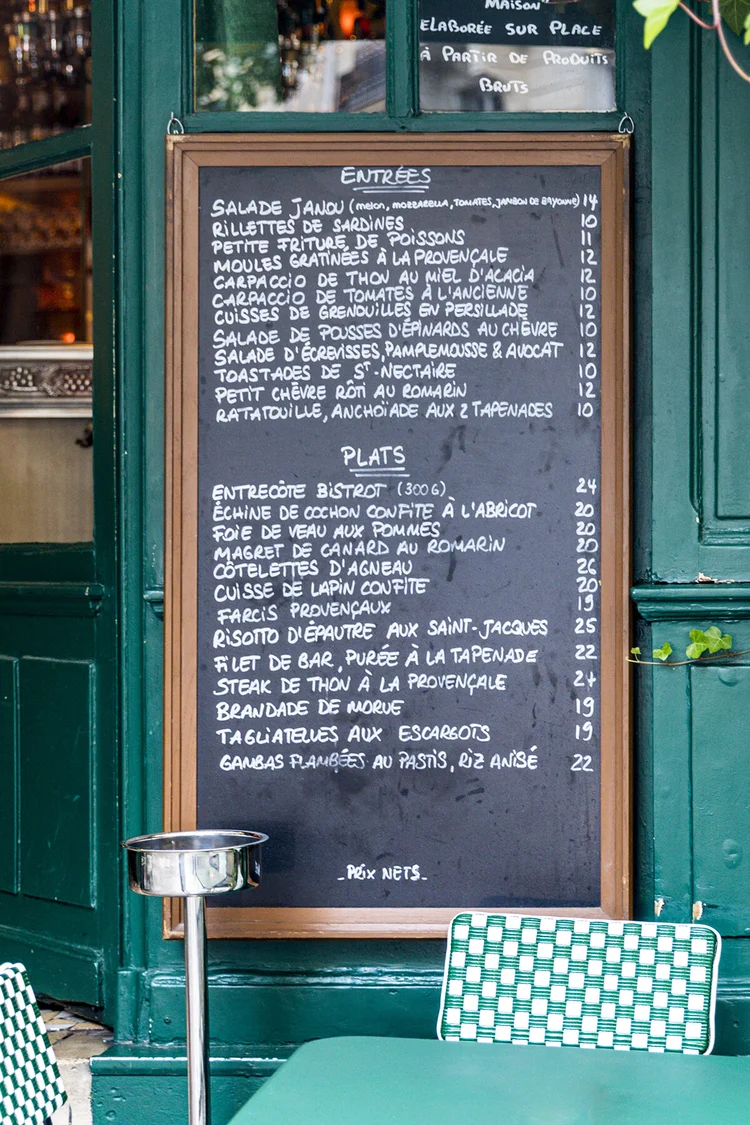 MAISON
ELABORÉE SUR PLACE
À PARTIR DE PRODUITS
BRUTS
ENTRÉES
SALADE JANOU (melon, MOZZARELLA, TOMATES, JAMBON DE BAYONNE) 14
RILLETTES DE SARDINES 10
PETITE FRITURE DE POISSONS 11
MOULES GRATINÉES À LA PROVENÇALE 12
CARPACCIO DE THON AU MIEL D'ACACIA 12
CARPACCIO DE TOMATES À L'ANCIENNE 10
CUISSES DE GRENOUILLES EN PERSILLADE 12
SALADE DE POUSSES D'ÉPINARDS AU CHÈVRE 10
SALADE D'ÉCREVISSES, PAMPLEMOUSSE & AVOCAT 12
TOASTADES DE ST-NECTAIRE 10
PETIT CHÈVRE RÔTI AU ROMARIN 12
RATATOUILLE, ANCHOÏADE AUX 2 TAPENADES 10
PLATS
ENTRECÔTE BISTROT (300G) 24
ÉCHINE DE COCHON CONFITE À L'ABRICOT 20
FOIE DE VEAU AUX POMMES 20
MAGRET DE CANARD AU ROMARIN 20
CÔTELETTES D'AGNEAU 26
CUISSE DE LAPIN CONFITE 20
FARCIS PROVENÇAUX 19
RISOTTO D'ÉPAUTRE AUX SAINT-JACQUES 25
FILET DE BAR, PURÉE À LA TAPENADE 22
STEAK DE THON À LA PROVENÇALE 24
BRANDADE DE MORUE 19
TAGLIATELLES AUX ESCARGOTS 19
GAMBAS FLAMBÉES AU PASTIS, RIZ ANISÉ 22
_PRIX NETS_